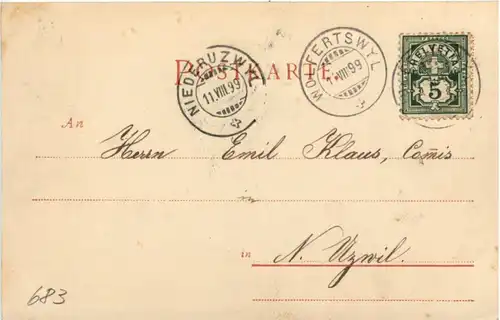 POSTKARTE.
NIEDERUZWYL
11.VIII.99
WOLFERTSWYL
VIII.99
HELVETIA
5
An Herrn Emil Klaus, Comis
in
in N. Uzwil.
683